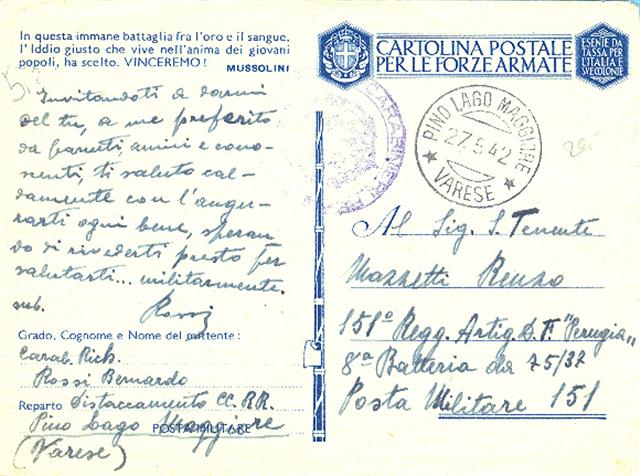 In questa immane battaglia fra l'oro e il sangue,
l'Iddio giusto che vive nell'anima dei giovani
popoli, ha scelto. VINCEREMO!
MUSSOLINI
Invitandoti a darmi
del tu, a me preferito
da parenti, amici e cono-
scenti, ti saluto cal-
damente con l'augu-
rarti ogni bene, speran
do di rivederti presto per
salutarti... militarmente.
Rossi
Grado, Cognome e Nome del mittente:
Carab. Rich.
Rossi Bernardo
Reparto Distaccamento CC. RR.
Pino Lago Maggiore
POSTA MILITARE
(Varese)
CARTOLINA POSTALE
PER LE FORZE ARMATE
ESENTE DA
TASSA PER
L'ITALIA E
SUE COLONIE
CARABINIERI
PINO LAGO MAGGIORE
27.5.42
VARESE
Al Sig. S. Tenente
Mazzetti Renzo
151º Regg. Artig. D. F. "Perugia"
8ª Batteria da 75/32
Posta Militare 151